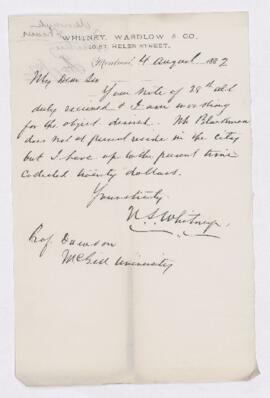 WHITNEY, WARDLOW & CO.
10 ST. HELEN STREET.
Montreal, 4 August 1882
My Dear Sir
Your note of 28th ult
duly received & I am working
for the object desired. Mr Blackman
does not at present reside in the city
but I have up to the present time
collected twenty dollars.
Yours truly,
N. S. Whitney
Prof Dawson
McGill University